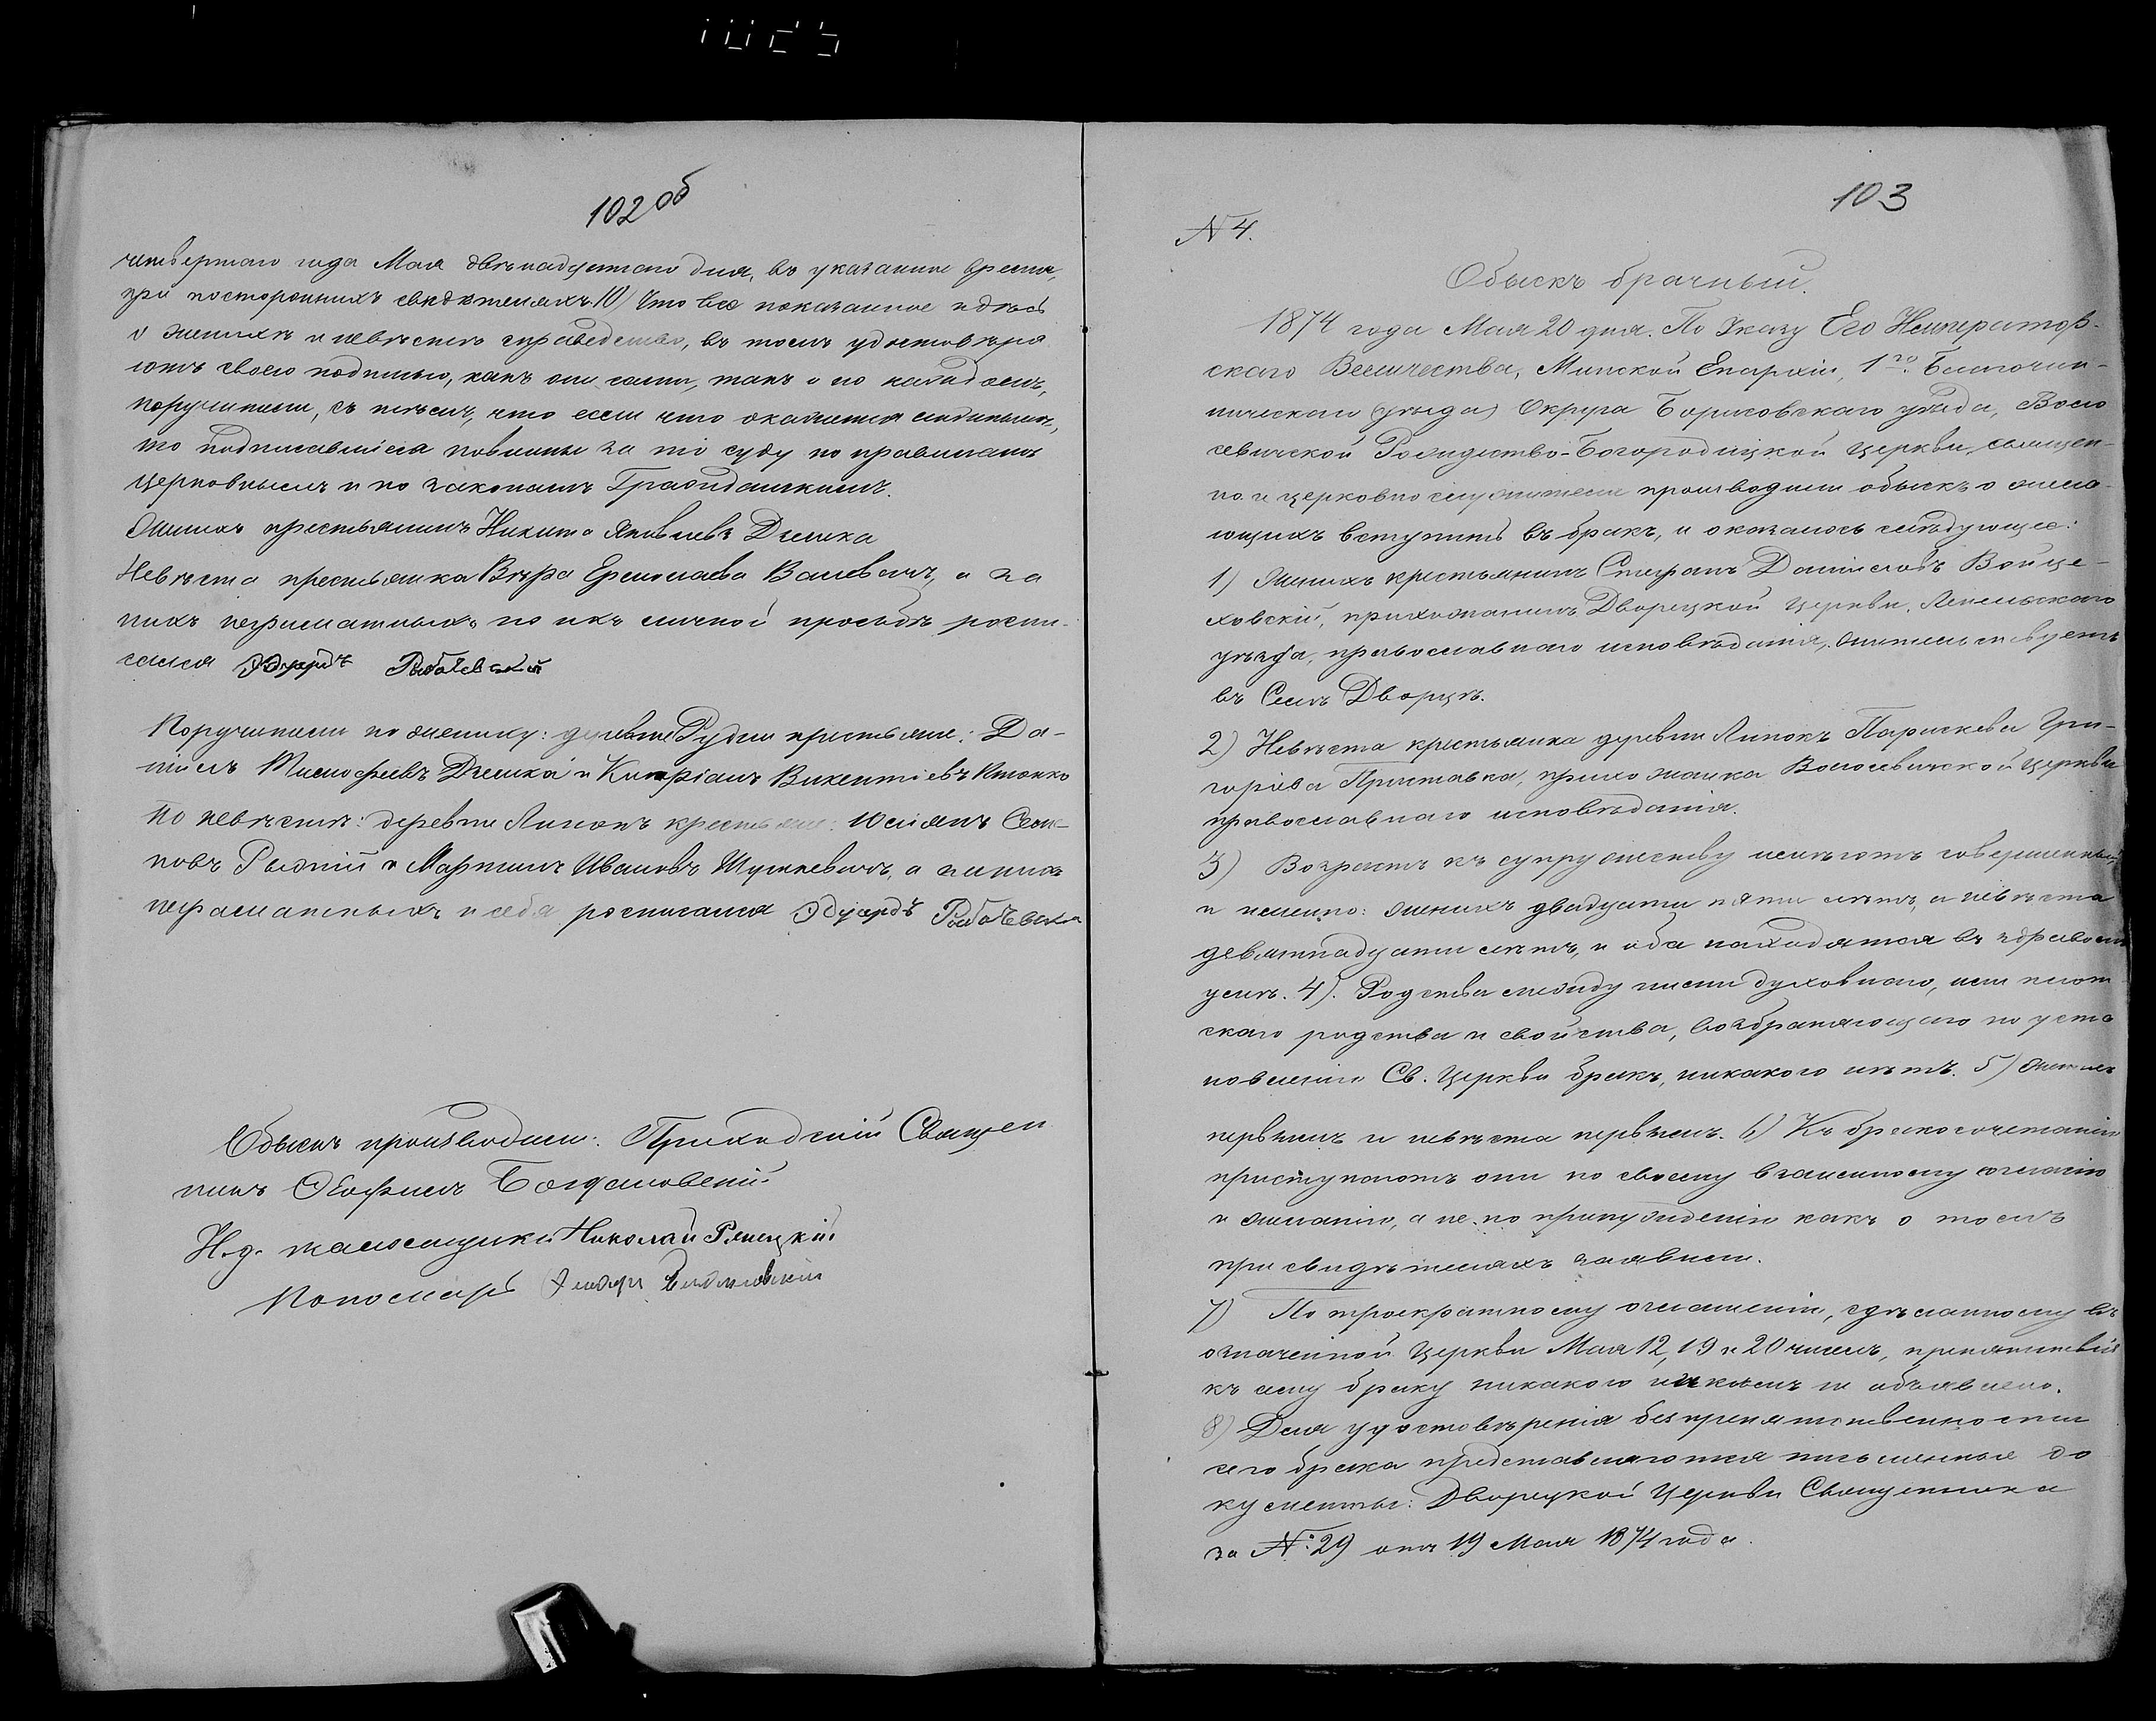 102 об
четвертаго года Мая двѣнадцетаго дня, въ указанное время,
при постороннихъ свидѣтеляхъ. 10) Что все показанное здѣсь
о женихѣ и невѣстѣ справедливо, въ томъ удостовѣря
ютъ своею подписью, какъ они сами, такъ и по каждомъ,
поручители, съ тѣмъ, что если что окажется ложнымъ,
то подписавшіеся повинны за то суду по правиламъ
церковнымъ и по законамъ Гражданскимъ.
Женихъ крестьянинъ Никита Яковлевъ
Невѣста крестьянка Вѣра Ермолаева Валевачъ, а за
нихъ неграмотныхъ по ихъ личной просьбѣ роспи-
сался Эдуардъ
Поручители по женику: деревни Рудни крестьяне: Да-
нилъ Тимофеевъ и Кипріанъ Викентіевъ
По невѣстѣ: деревни Липокъ крестьяне: Юліянъ Семе-
новъ и Мартинъ Ивановъ а за нихъ
неграматныхъ и себя росписался Эдуардъ
Обыскъ производили: Приходскій Священ
никъ Богдановскій
И. д. псаломщика Николай
Пономарь
103
N 4.
Обыскъ брачный.
1874 года Мая 20 дня. По Указу Его Император-
скаго Величества, Минской Епархіи, 1го Благочин-
ническаго (уѣзда) Округа Борисовскаго уѣзда, Воло
севичской Рождество-Богородицкой церкви, священ-
но и церковно служители производили обыскъ о жела-
ющихъ вступить въ бракъ, и оказалось слѣдующее:
1) Женихъ крестьянинъ Стефанъ Даниловъ Войце-
ховскій, прихожанинъ Дворецкой церкви, Лепельскаго
уѣзда, православнаго исповѣданія, жительствуетъ
въ Селѣ Дворцѣ.
2) Невѣста крестьянка деревни Липокъ Параскева Гри-
горіева Приставка, прихожанка Волосевичской церкви
православнаго исповѣданія.
3) Возрастъ къ супружеству имѣютъ совершенный,
и именно: женихъ двадцати пяти лѣтъ, а невѣста
девятнадцати лѣтъ, и оба находятся въ здравомъ
умѣ. 4). Родства между ними духовнаго, или плот
скаго родства и свойства, возбраняющаго по уста
новленію Св. Церкви бракъ, никакого нѣтъ. 5) Женихъ
первымъ и невѣста первымъ. 6) Къ бракосочетанію
приступаютъ они по своему взаимному согласію
и желанію, а не по принужденію какъ о томъ
при свидѣтеляхъ заявили.
7) По троекратному оглашенію, сдѣланному въ
означенной церкви Мая 12, 19 и 20 чиселъ, препятствій
къ сему браку никакого никѣмъ не объявлено.
8) Для удостовѣренія безпрепятственности
сего брака представляются письменные до
кументы: Дворецкой Церкви Священника
за №. 29 отъ 19 Мая 1874 года.